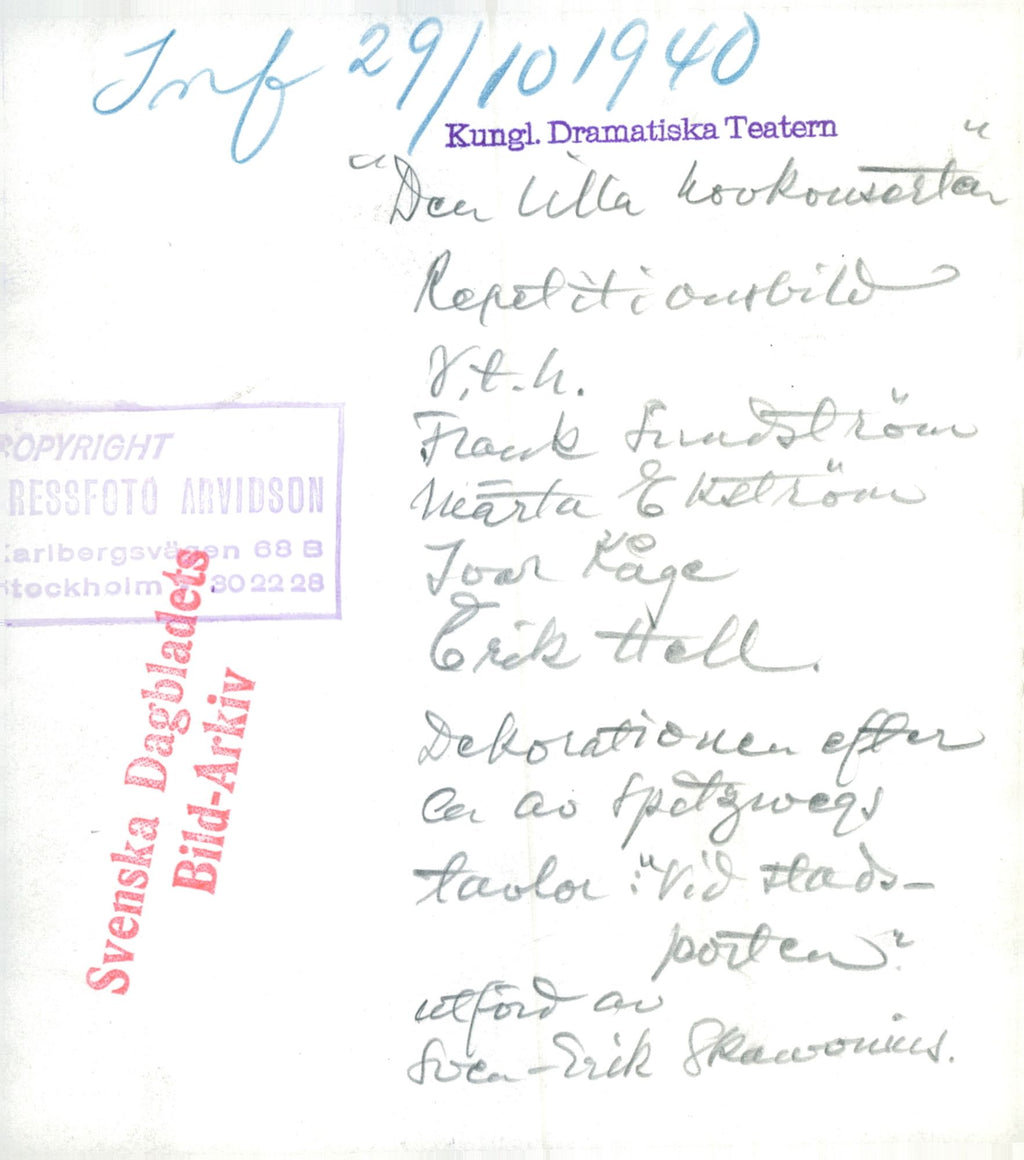 Inf 29/10 1940
Kungl. Dramatiska Teatern
"Den lilla hovkonserten"
Repetitionsbild
V.t.h.
Frank Sundström
Märta Ekström
Ivar Kåge
Erik Hell.
Dekorationen efter
en av Spetzwegs
tavlor: "Vid stads-
porten"
utförd av
Sven-Erik Skawonius.
OPYRIGHT
RESSFOTO ARVIDSON
arlbergsvägen 68 B
tockholm 30 22 28
Svenska Dagbladets
Bild-Arkiv